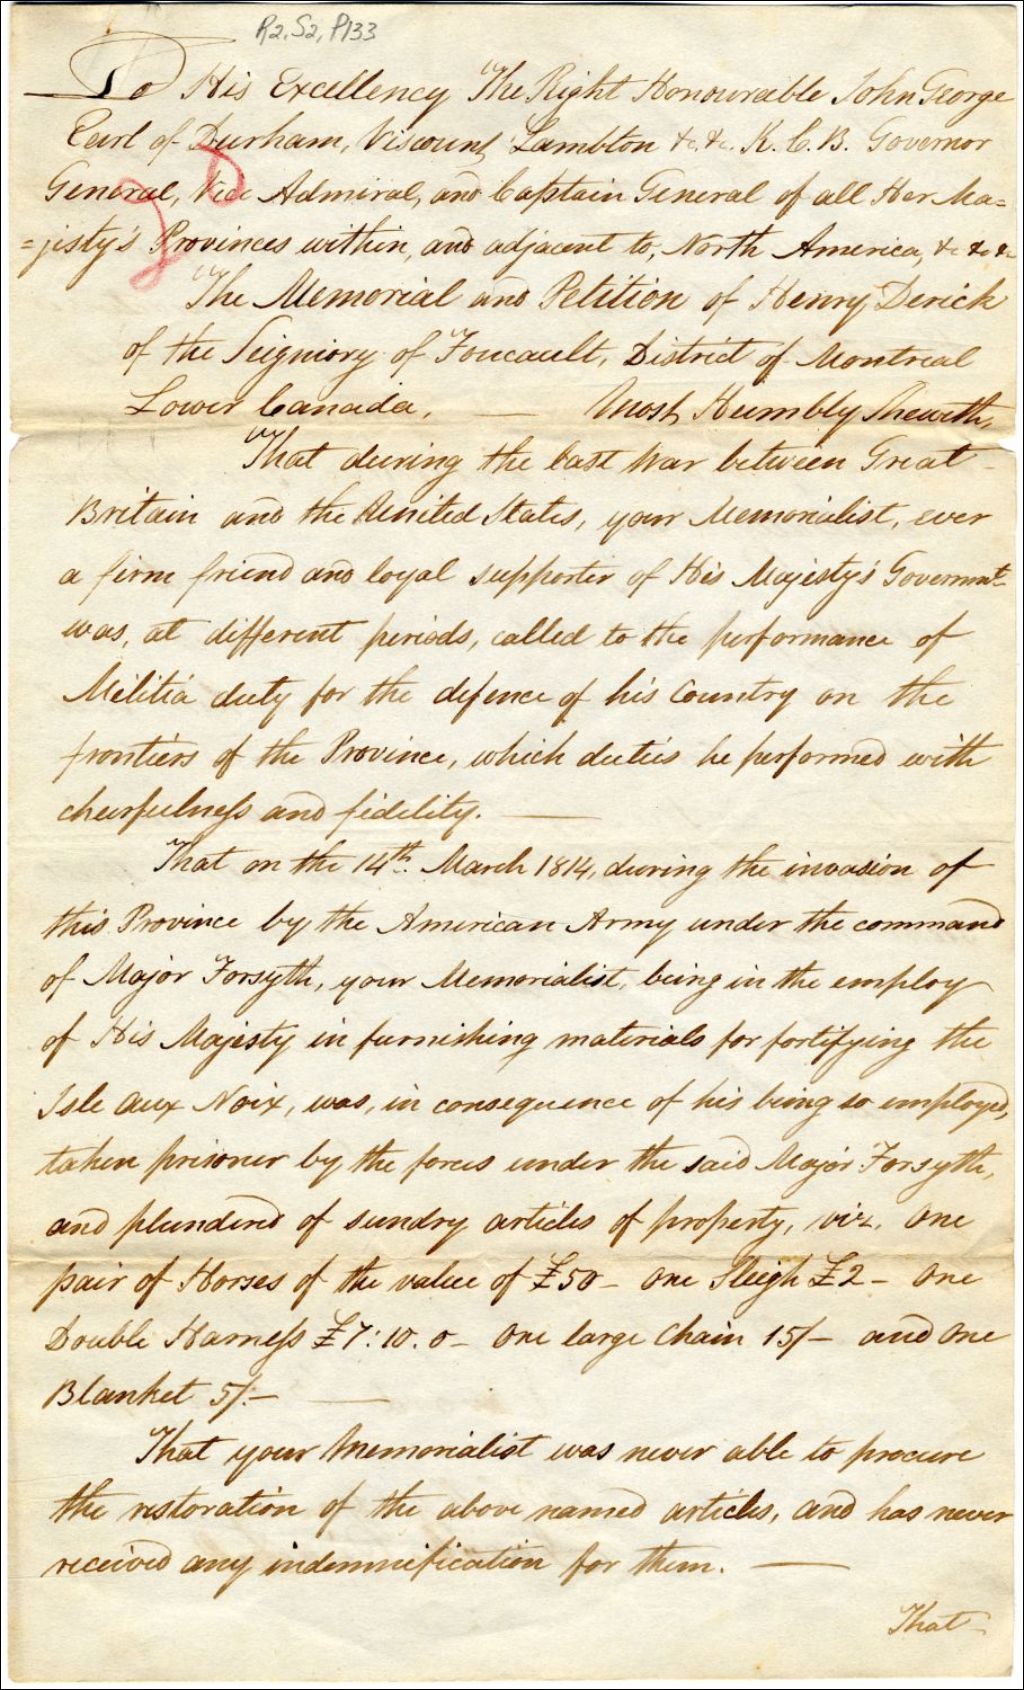 R2, S2, P133
To His Excellency The Right Honourable John George
Earl of Durham, Viscount Lambton &c. &c. K. C. B. Governor
General, Vice Admiral, and Captain General of all Her Ma=
=jisty's Provinces within, and adjacent to, North America, &c &c &c
The Memorial and Petition of Henry Derick
of the Seigniory of Foucault, District of Montreal
Lower Canada. — Most Humbly Sheweth,
That during the last War between Great
Britain and the United States, your Memorialist, ever
a firm friend and loyal supporter of His Majesty's Governmt
was, at different periods, called to the performance of
Militia duty for the defence of his Country on the
frontiers of the Province, which duties he performed with
cheerfulness and fidelity. —
That on the 14th. March 1814, during the invasion of
this Province by the American Army under the command
of Major Forsyth, your Memorialist, being in the employ
of His Majesty in furnishing materials for fortifying the
Isle aux Noix, was, in consequence of his being so employed,
taken prisoner by the forces under the said Major Forsyth,
and plundered of sundry articles of property, viz. One
pair of Horses of the value of £50 – One Sleigh £2 – One
Double Harness £7:10.0 – One large Chain 15/– and One
Blanket 5/:– —
That your Memorialist was never able to procure
the restoration of the above named articles, and has never
received any indemnification for them. —
That